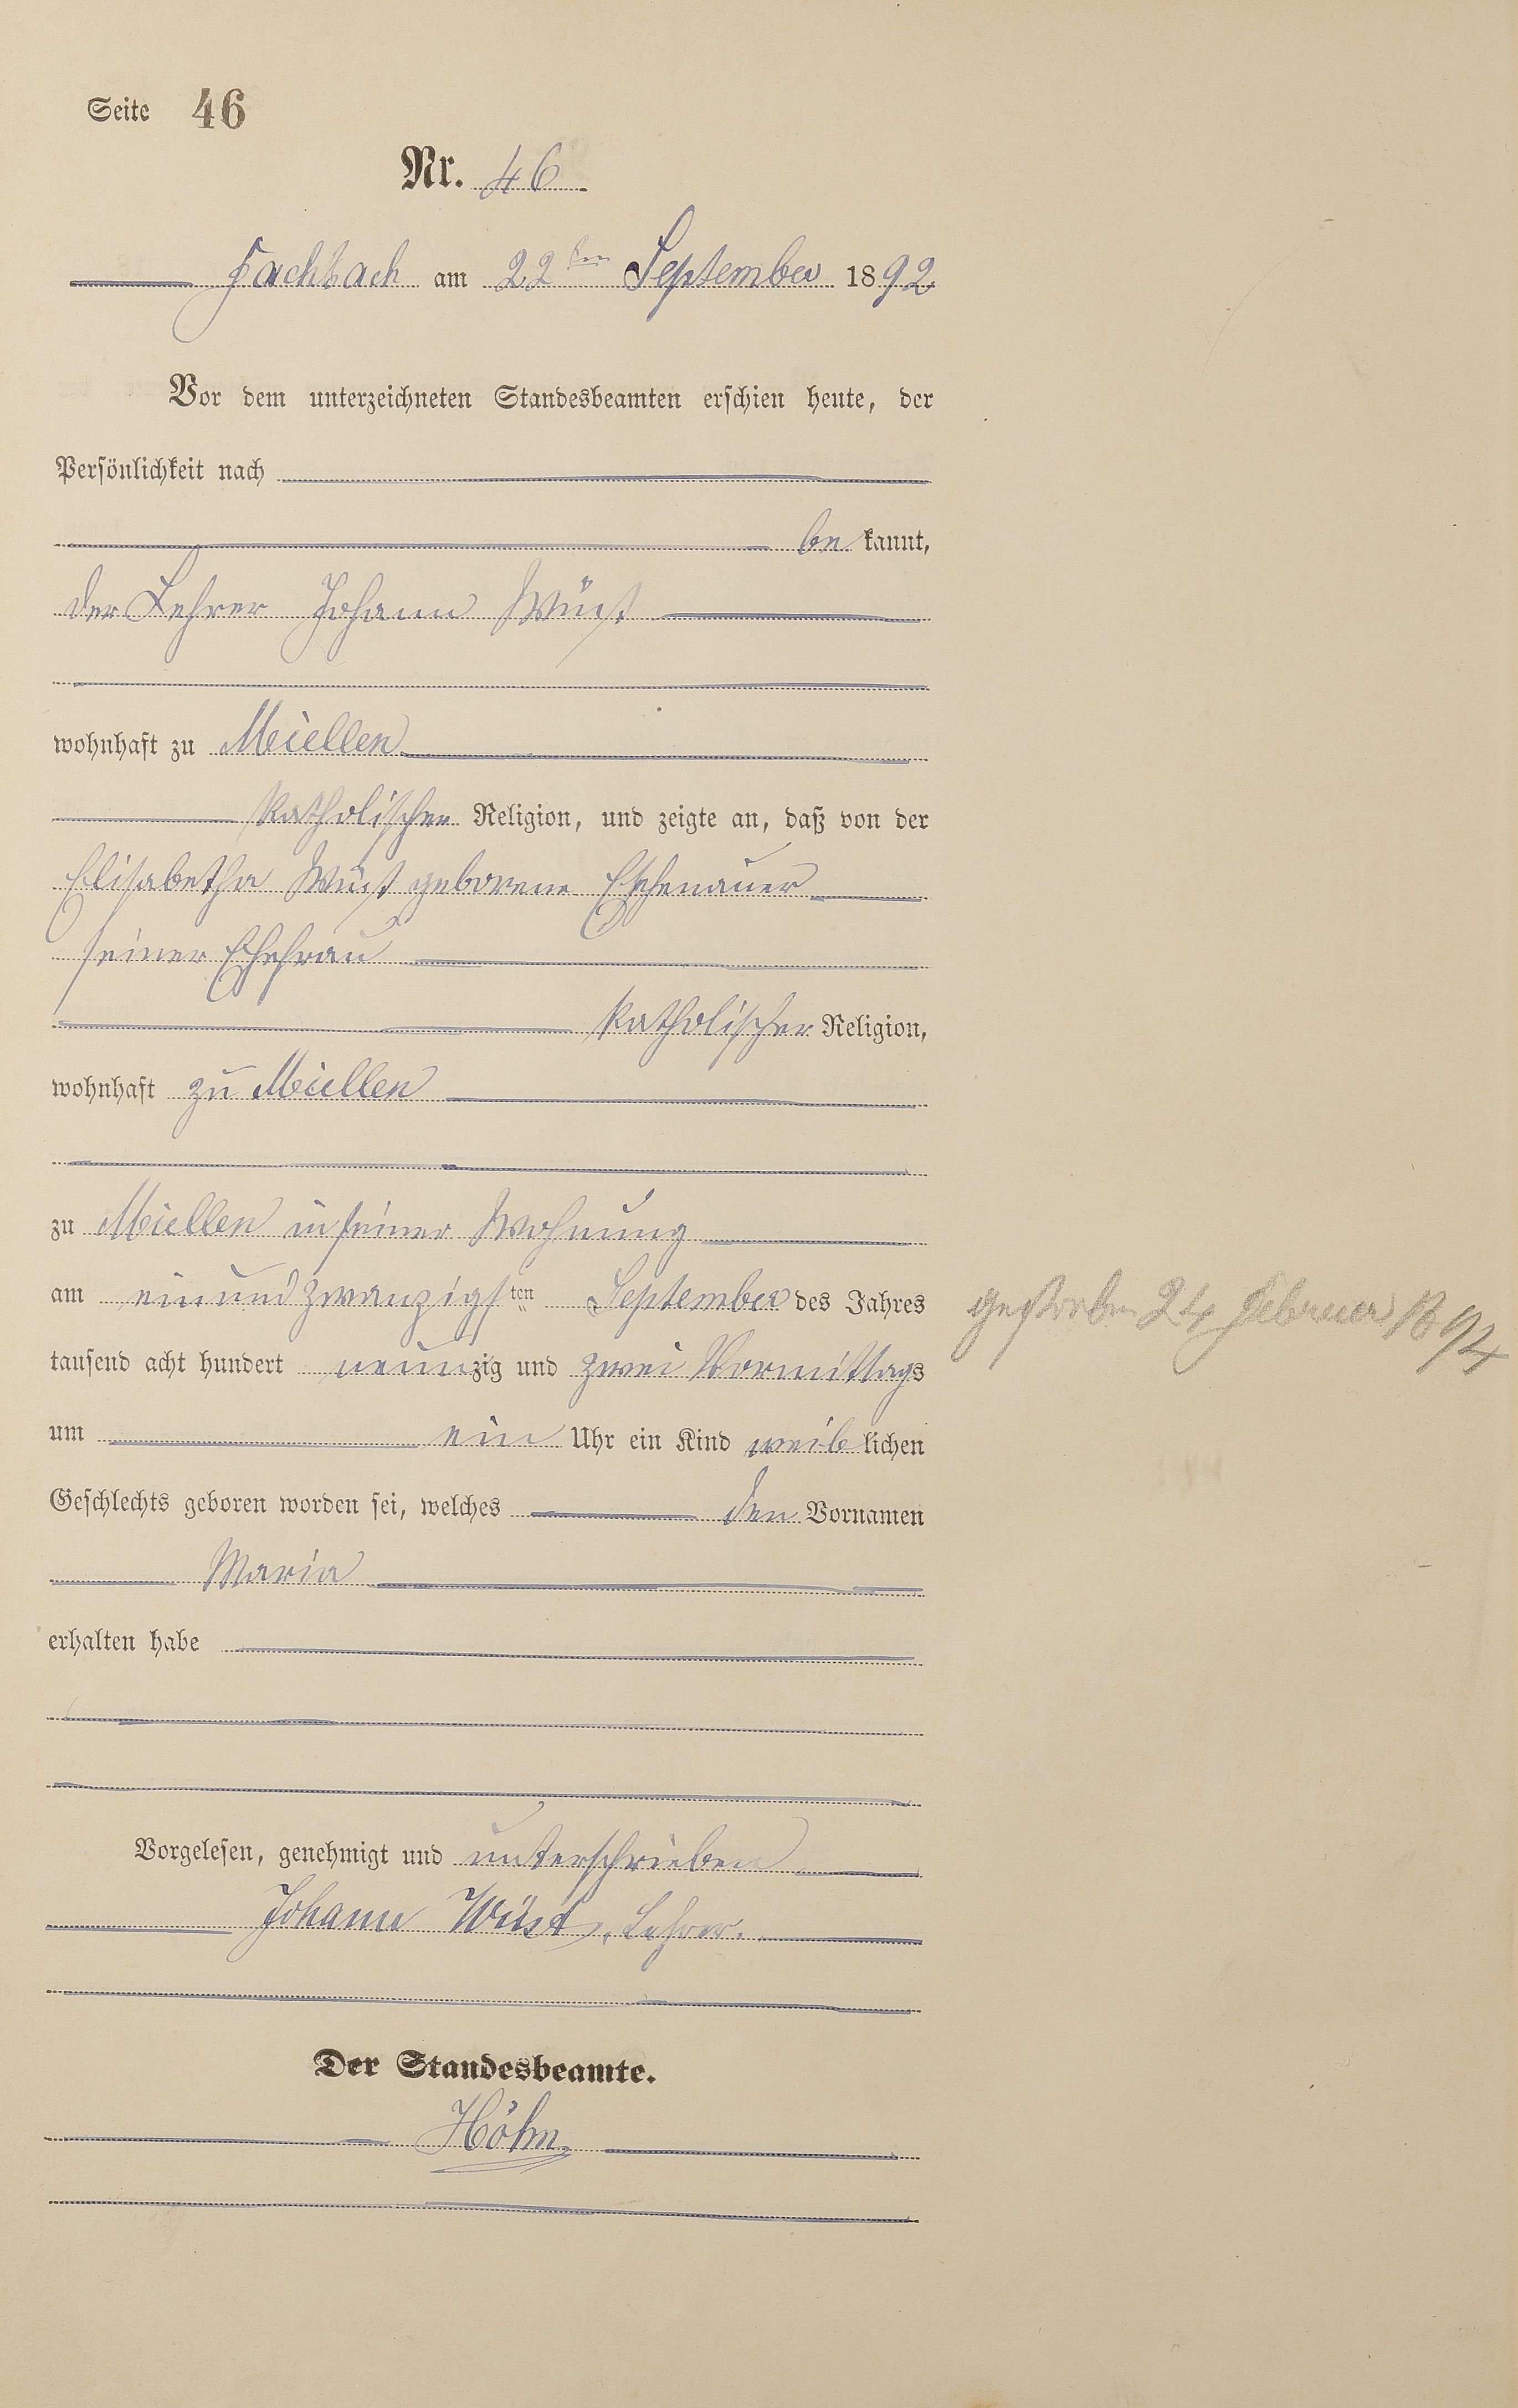 Seite 46
Nr. 46
Fachbach am 22ten September 1892
Vor dem unterzeichneten Standesbeamten erschien heute, der
Persönlichkeit nach
be kannt,
der Lehrer Johann Wüst
wohnhaft zu Miellen
katholischer Religion, und zeigte an, daß von der
Elisabetha Wüst geborene Eschenauer
seiner Ehefrau
katholischer Religion,
wohnhaft zu Miellen
zu Miellen in seiner Wohnung
am einundzwanzigsten September des Jahres
tausend acht hundert neunzig und zwei Vormittags
um ein Uhr ein Kind weiblichen
Geschlechts geboren worden sei, welches den Vornamen
Maria
erhalten habe
gestorben 24 Februar 1894
Vorgelesen, genehmigt und unterschrieben
Johann Wüst, Lehrer.
Der Standesbeamte.
Höhn